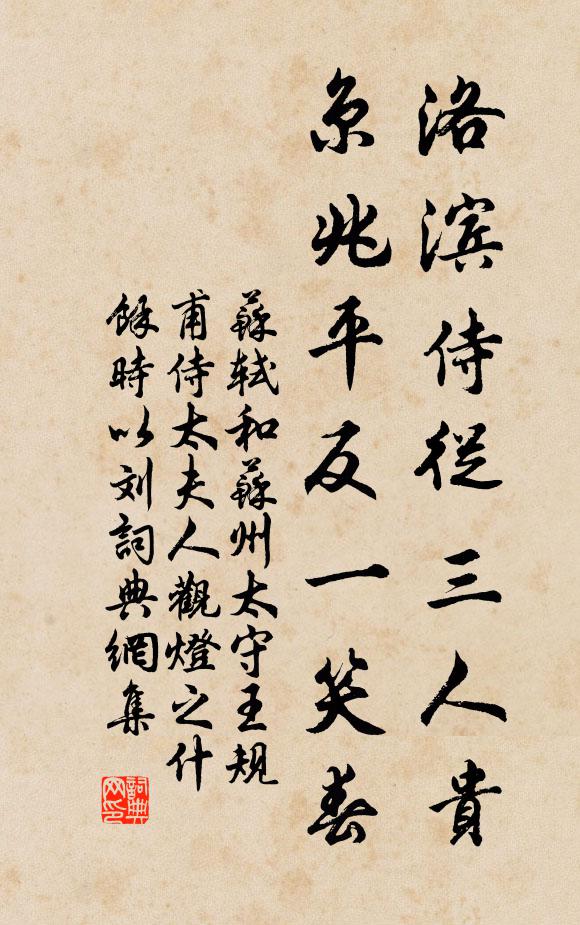 洛滨侍從三人貴
京兆平反一笑春
蘇軾和蘇州太守王规
甫侍太夫人觀燈之什
餘時以刘
詞典網集
詞典網印